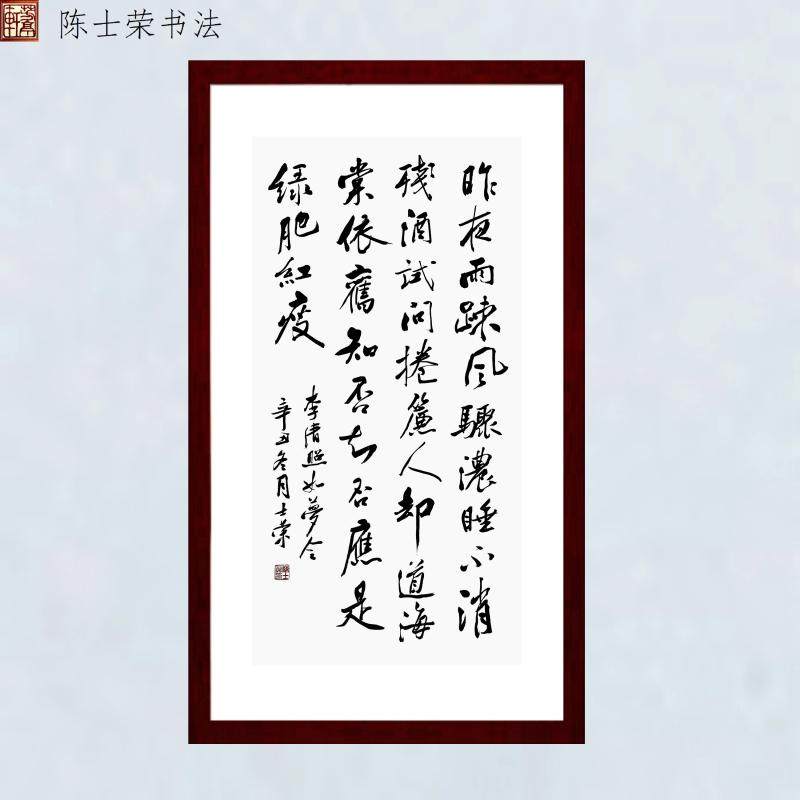 陈士荣书法
昨夜雨踈风驟濃睡不消
残酒試问捲簾人却道海
棠依舊知否知否應是
绿肥紅瘦
李清照如夢令
辛丑冬月士荣